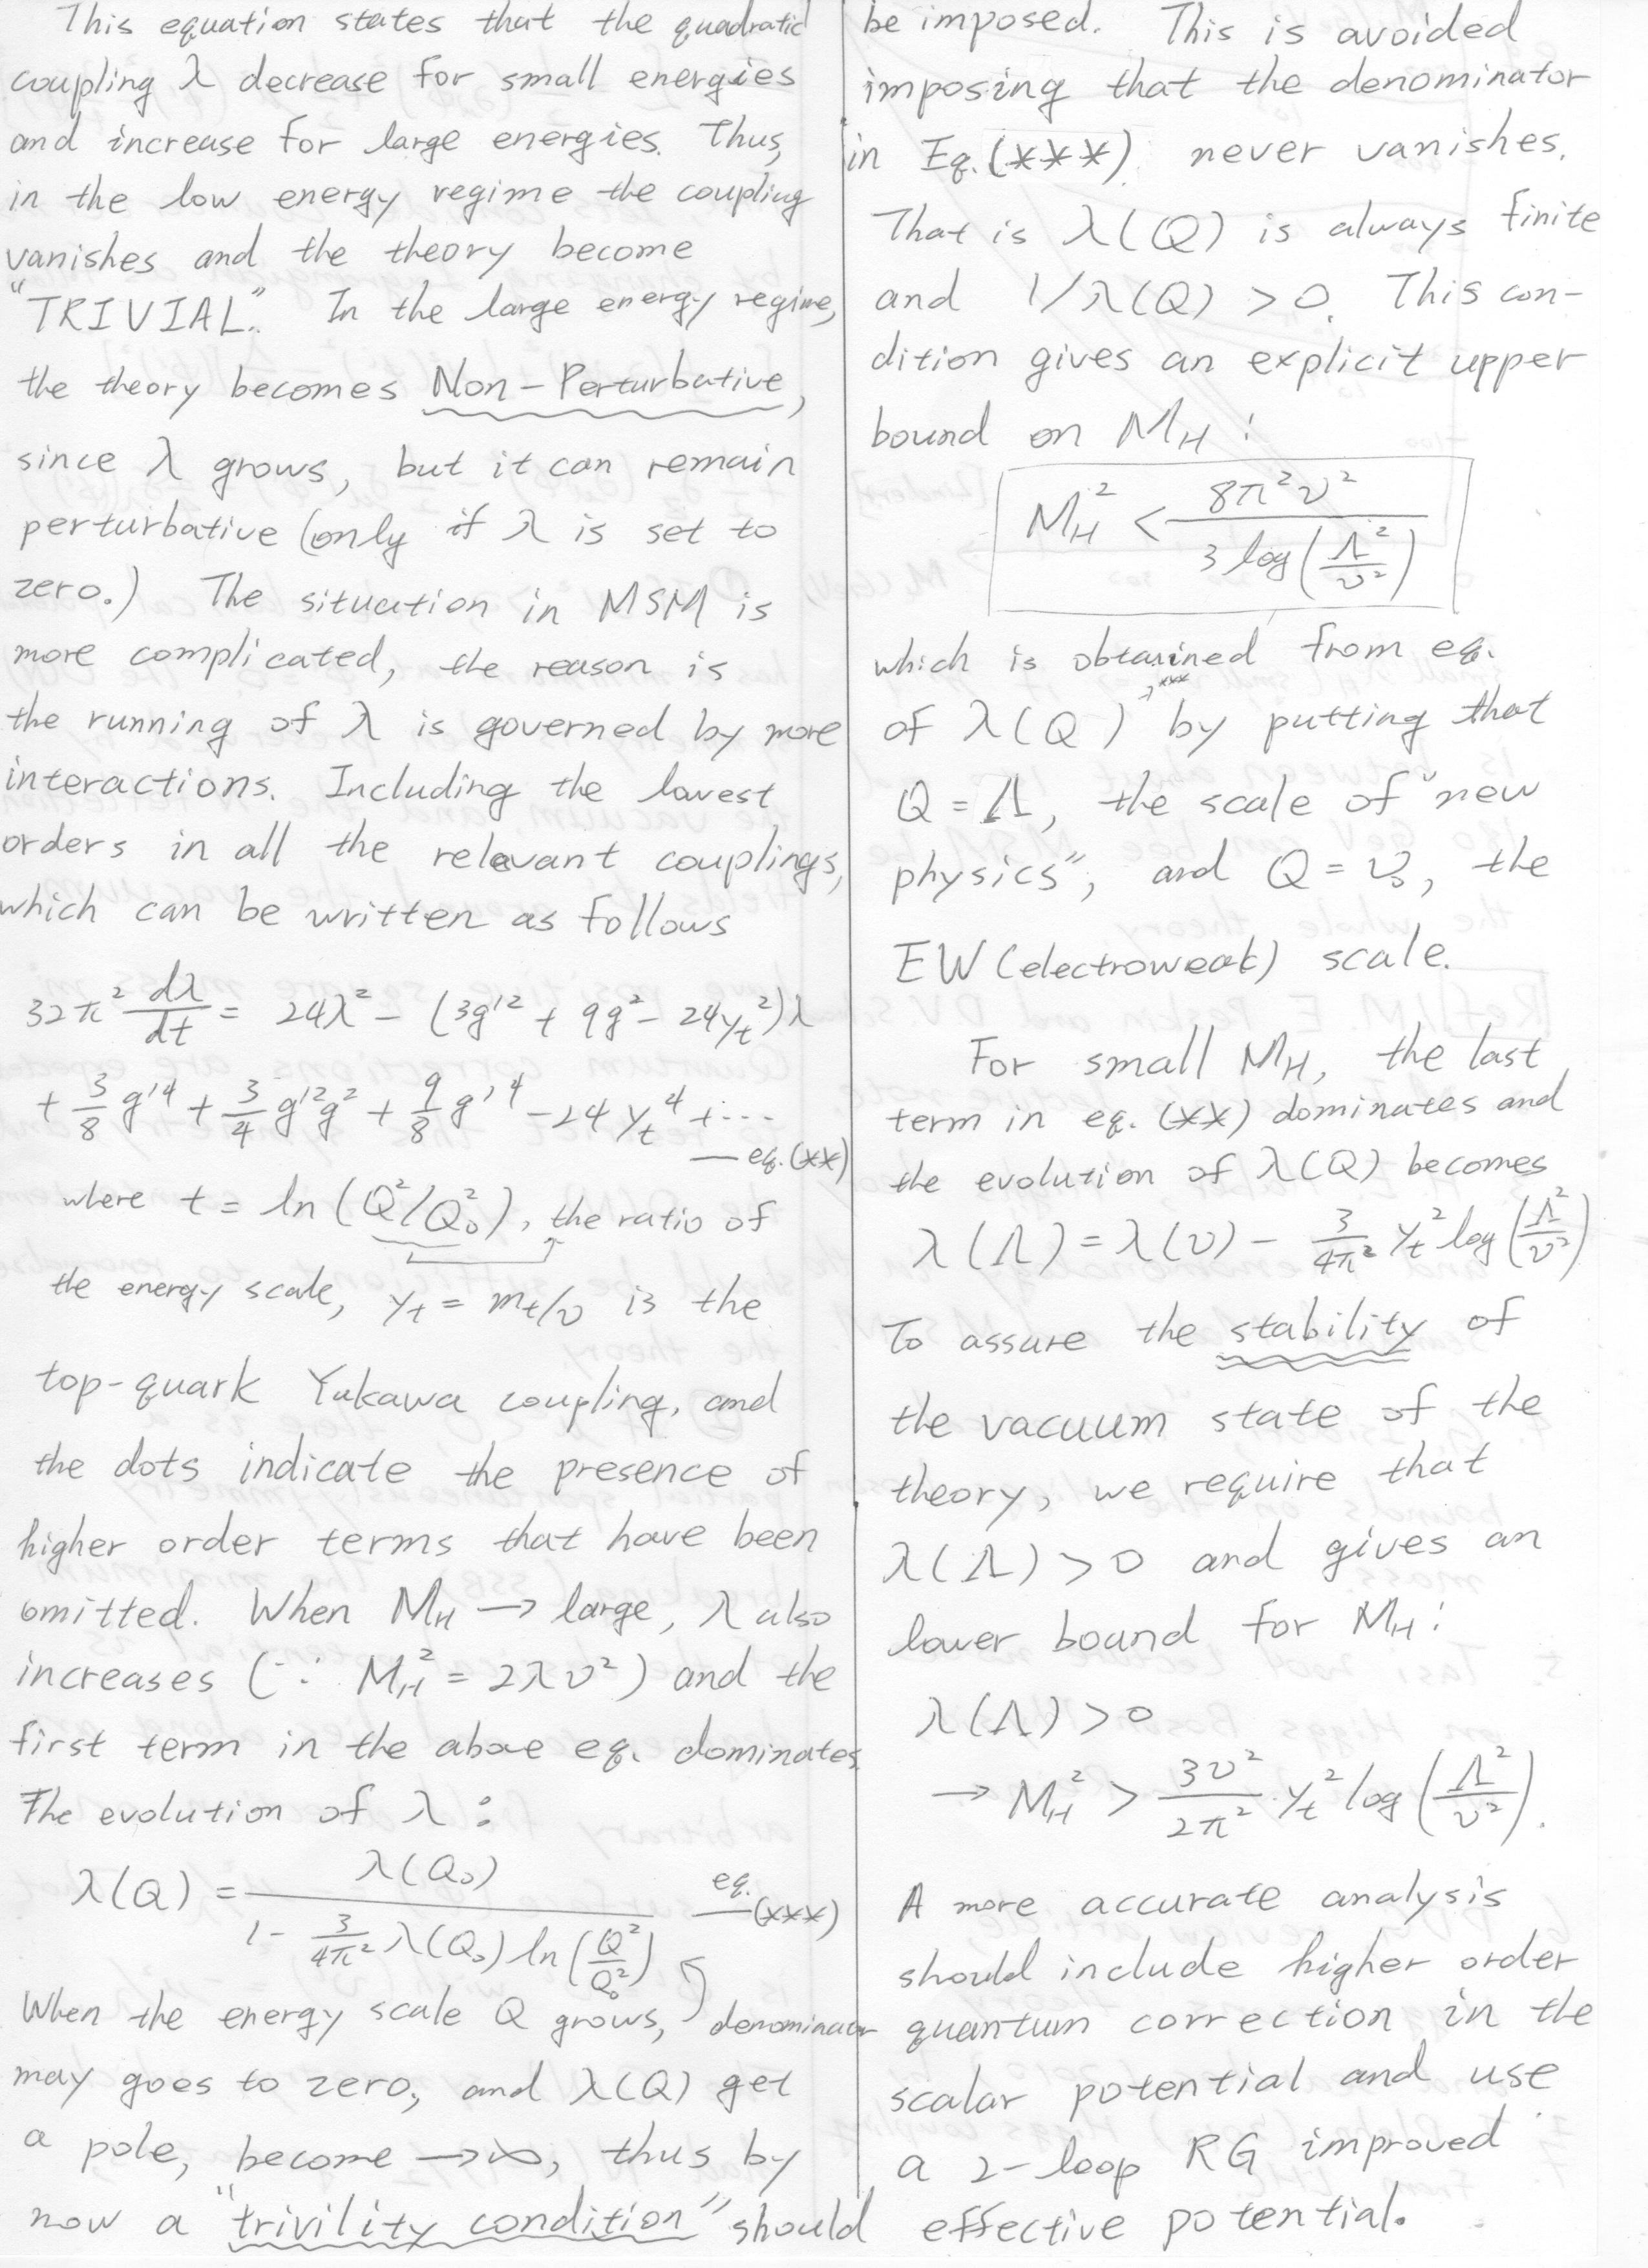 This equation states that the quadratic
coupling λ decrease for small energies
and increase for large energies. Thus,
in the low energy regime the coupling
vanishes and the theory become
"TRIVIAL". In the large energy regime,
the theory becomes Non-Perturbative,
since λ grows, but it can remain
perturbative (only if λ is set to
zero.) The situation in MSM is
more complicated, the reason is
the running of λ is governed by more
interactions. Including the lowest
orders in all the relevant couplings,
which can be written as follows
32π² dλ/dt = 24λ² - (3g'² + 9g² - 24y_t²)λ
+ 3/8 g'⁴ + 3/4 g'²g² + 9/8 g'⁴ - 24 y_t⁴ + ...
— eq.(**)
where t = ln(Q²/Q₀²), the ratio of
the energy scale, y_t = m_t/v is the
top-quark Yukawa coupling, and
the dots indicate the presence of
higher order terms that have been
omitted. When M_H → large, λ also
increases (∵ M_H² = 2λv²) and the
first term in the above eq. dominates
The evolution of λ :
λ(Q) = λ(Q₀) / (1 - 3/4π² λ(Q₀) ln(Q²/Q₀²)) — eq. (***)
When the energy scale Q grows, denominator
may goes to zero, and λ(Q) get
a pole, become → ∞, thus by
now a "trivility condition" should
be imposed. This is avoided
imposing that the denominator
in Eq.(***) never vanishes.
That is λ(Q) is always finite
and 1/λ(Q) > 0. This con-
dition gives an explicit upper
bound on M_H :
M_H² < 8π²v² / 3 log(Λ²/v²)
which is obtained from eq.
of λ(Q) *** by putting that
Q = Λ, the scale of "new
physics", and Q = v₀, the
EW (electroweak) scale.
For small M_H, the last
term in eq. (**) dominates and
the evolution of λ(Q) becomes
λ(Λ) = λ(v) - 3/4π² y_t² log(Λ²/v²)
To assure the stability of
the vacuum state of the
theory, we require that
λ(Λ) > 0 and gives an
lower bound for M_H :
λ(Λ) > 0
→ M_H² > 3v²/2π² y_t² log(Λ²/v²).
A more accurate analysis
should include higher order
quantum correction in the
scalar potential and use
a 2-loop RG improved
effective potential.